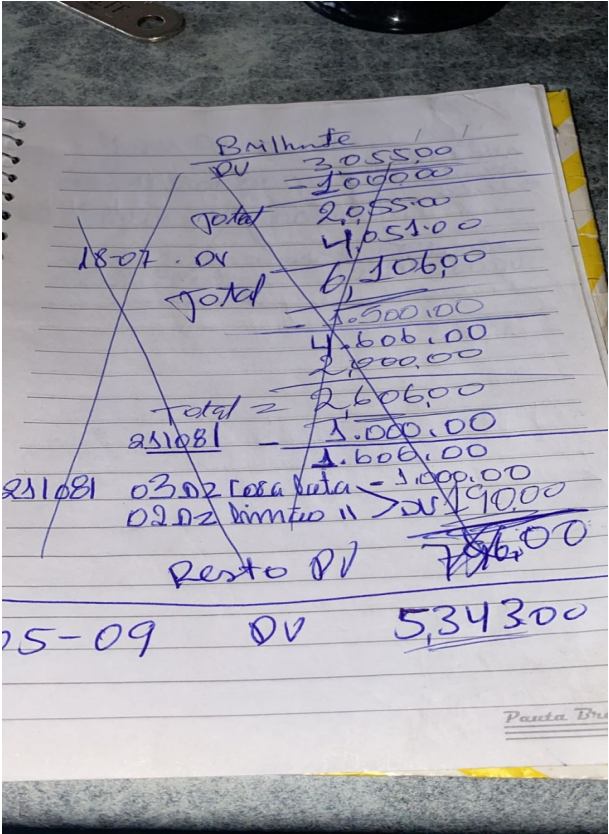 Brilhante
DV 3.055,00
- 1.000,00
Total 2,055.00
18-07 . DV 4,051.00
Total 6,106,00
- 1.500,00
4.606,00
2,000,00
Total = 2,606,00
211081 - 1.000.00
1.606.00
211081 03 Dz - 1,000.00
02 Dz 11 > DV 190,00
Resto DV
05-09 DV 5,343.00
Pauta